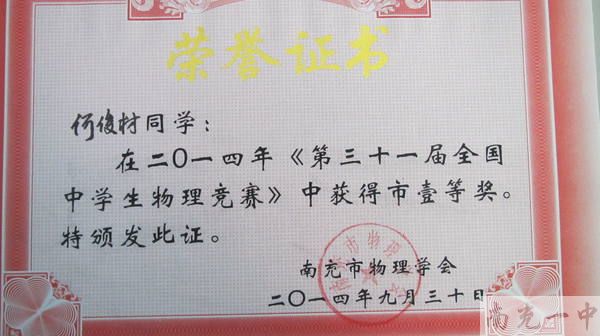 荣誉证书
何俊材同学：
在二〇一四年《第三十一届全国
中学生物理竞赛》中获得市壹等奖。
特颁发此证。
南充市物理学会
二〇一四年九月三十日
南充一中